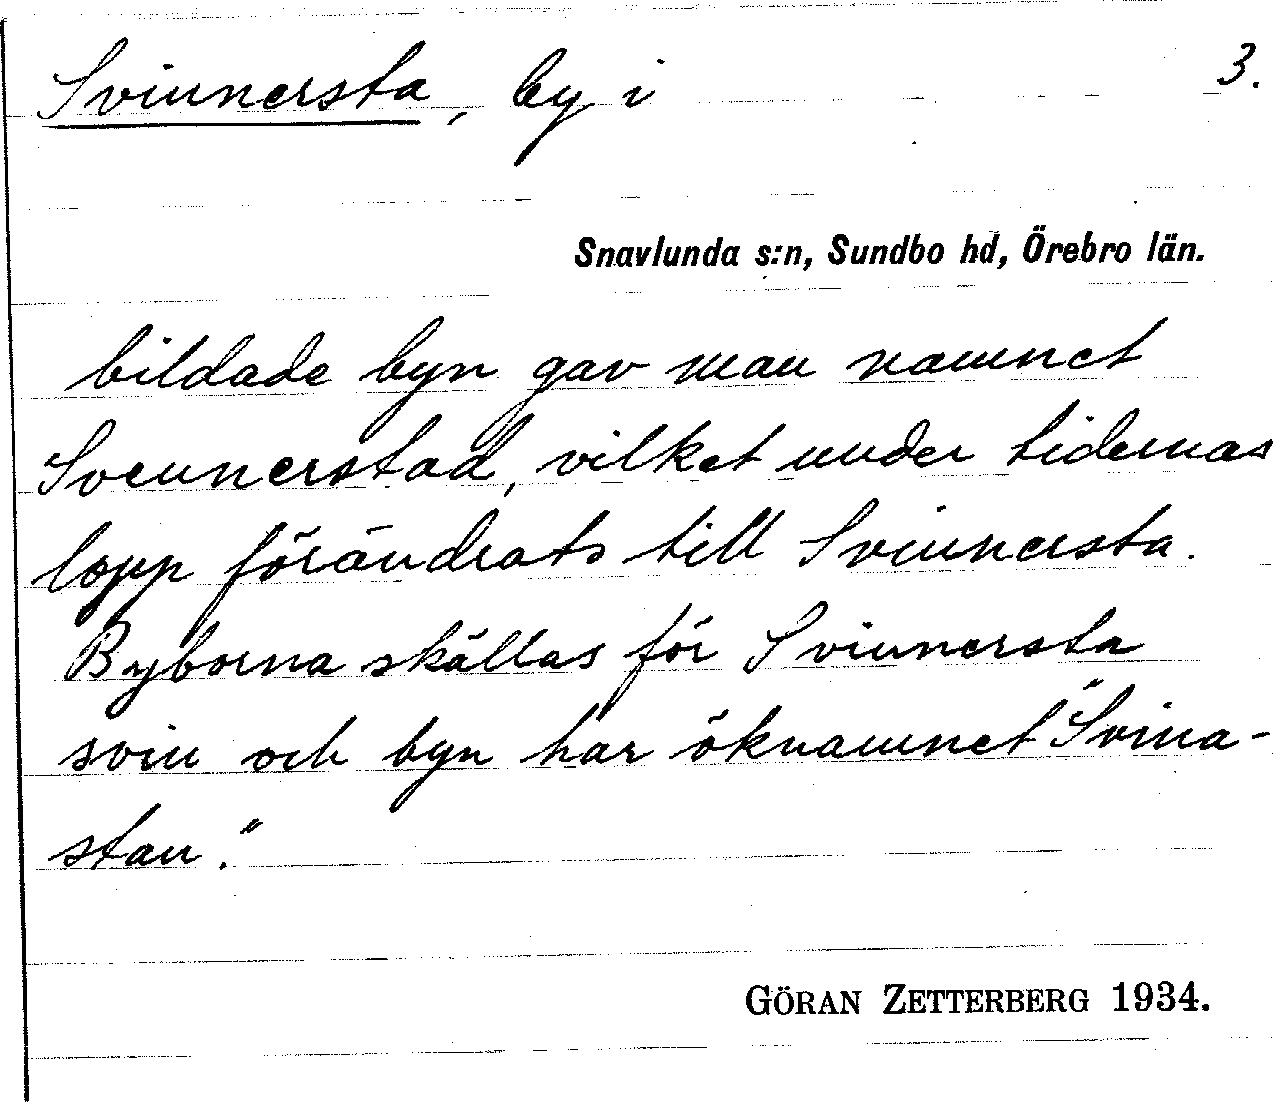 Svinnersta, by i 3.
Snavlunda s:n, Sundbo hd, Örebro län.
bildade byn gav man namnet
Svennerstad, vilket under tidernas
lopp förändrats till Svinnersta.
Byborna skällas för Svinnersta
svin och byn har öknamnet "Svina-
stan."
GÖRAN ZETTERBERG 1934.